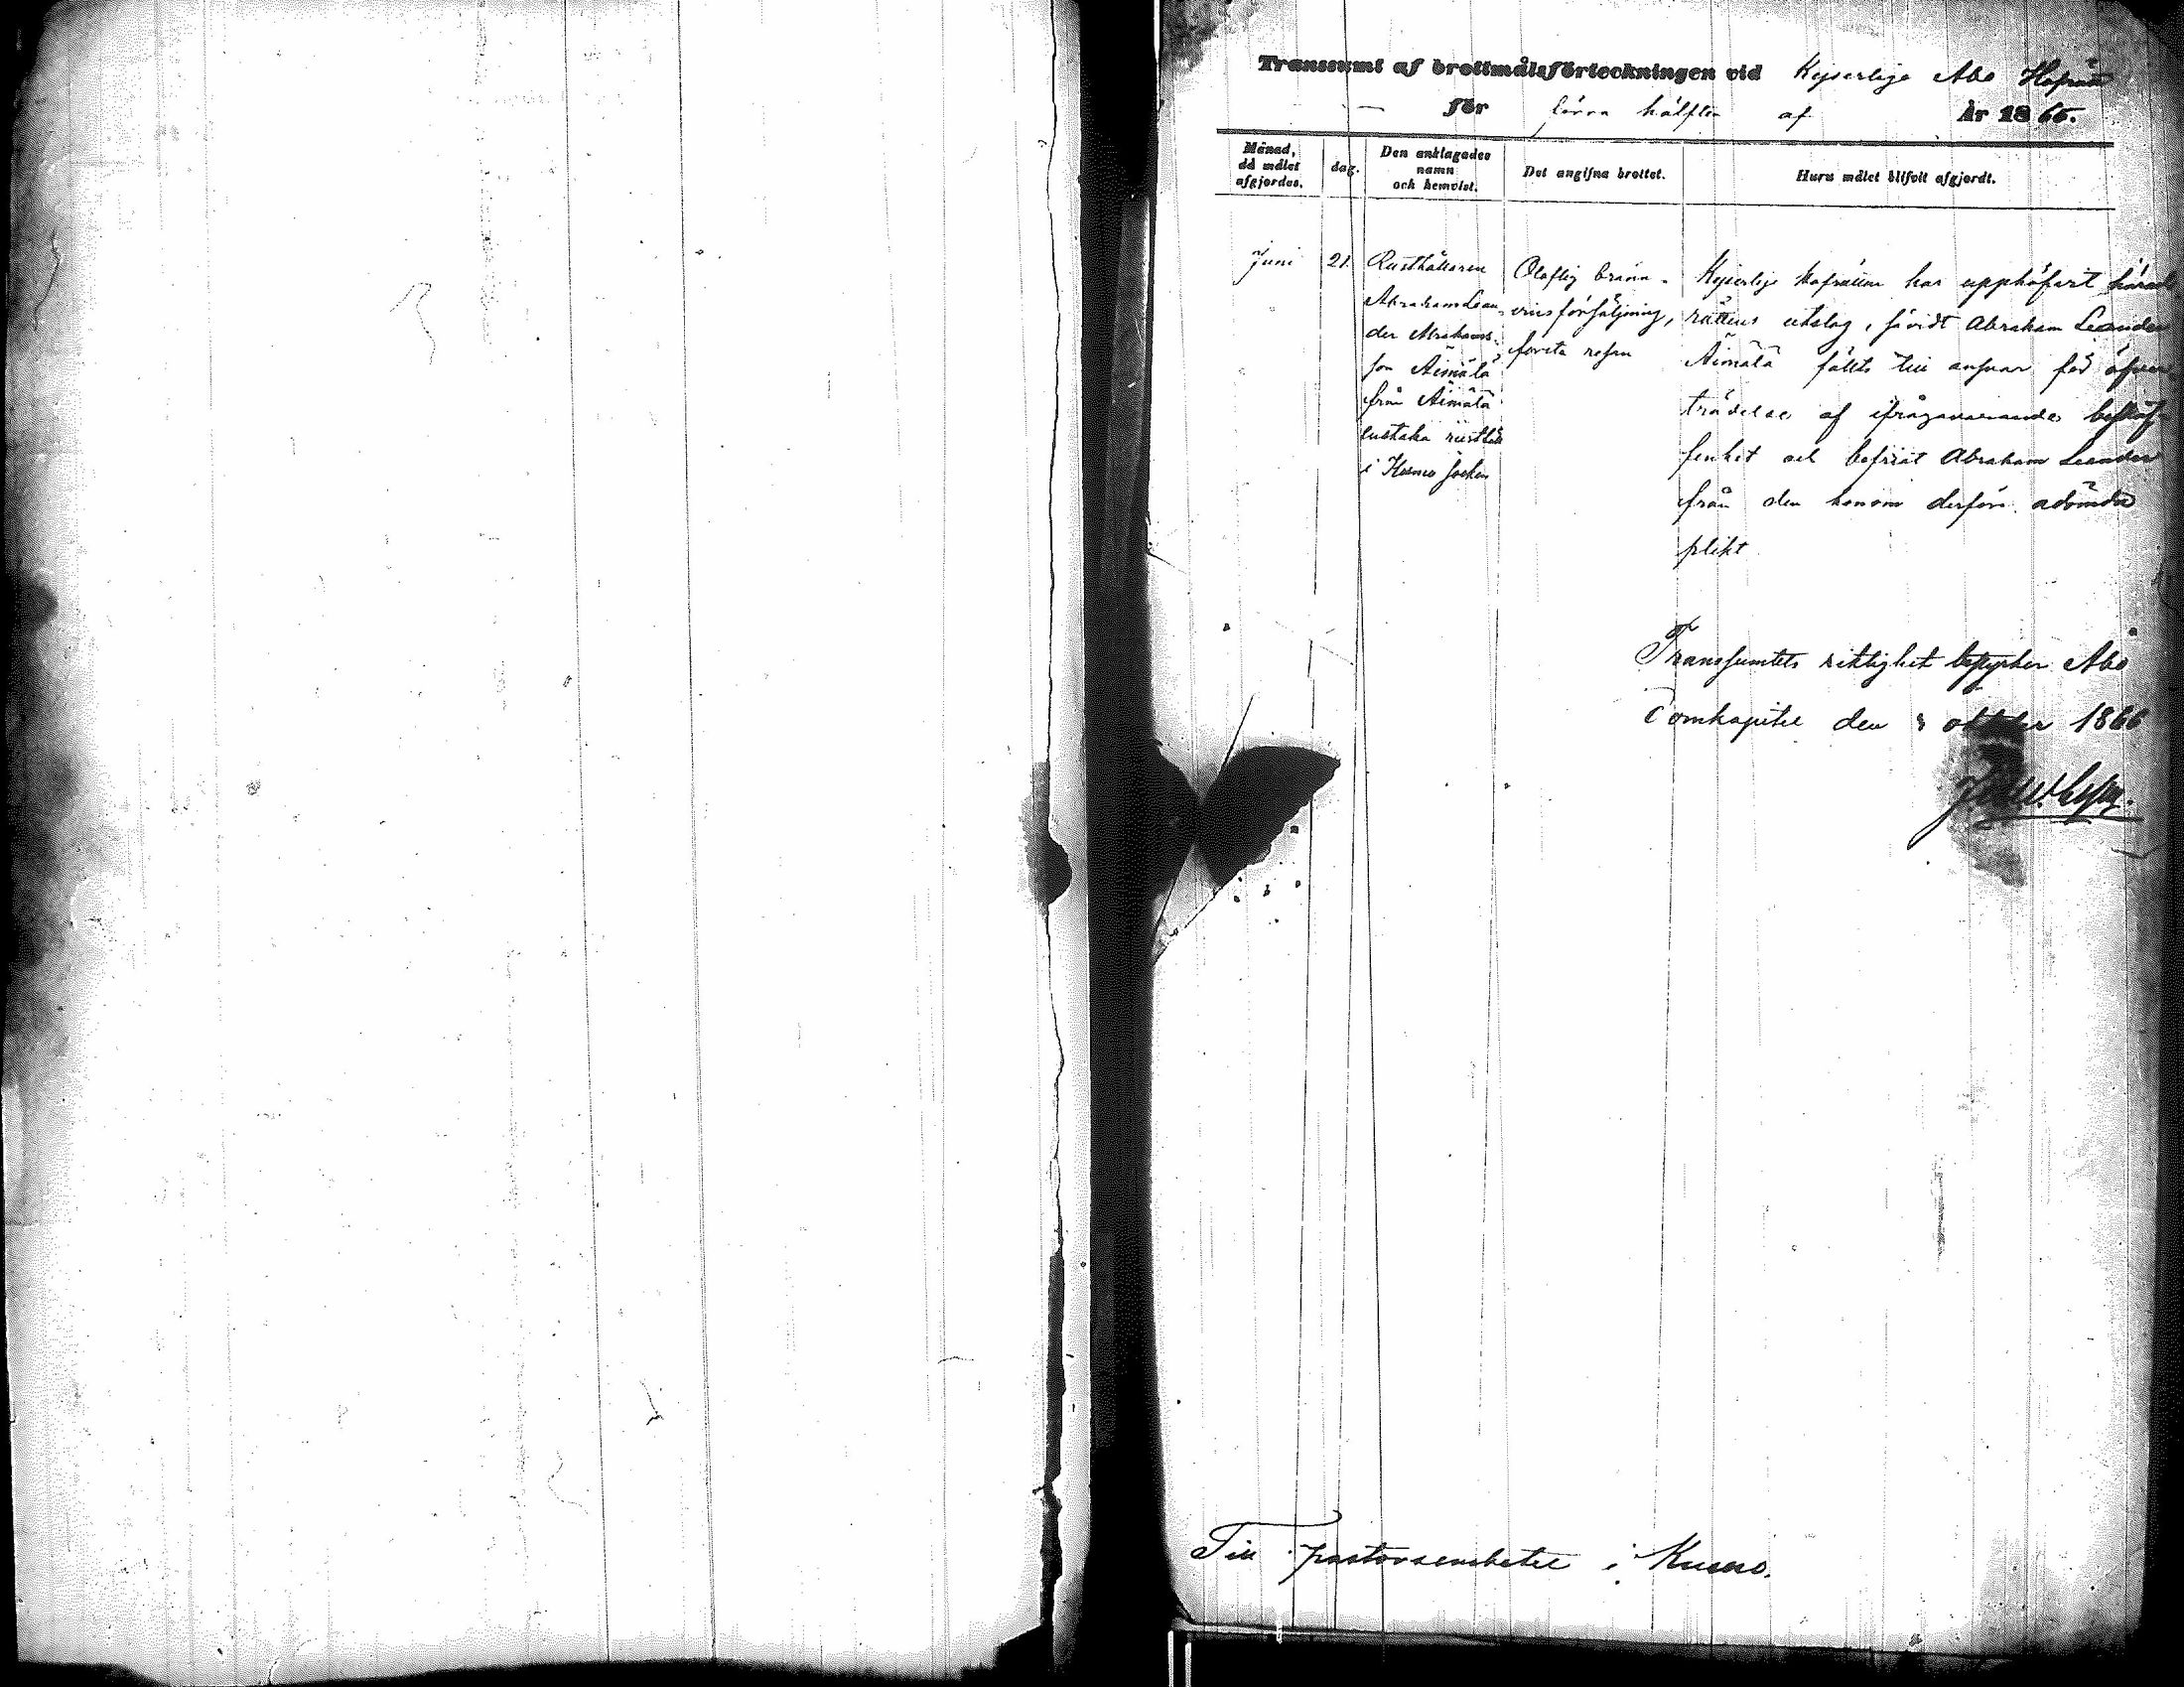 Transsumt af brottmålsförteckningen vid Kejserliga Åbo Hofrätt
för förra hälften af År 1866.
Månad, då målet afgjordes.
dag.
Den anklagades namn och hemvist.
Det angifna brottet.
Huru målet blifvit afgjordt.
Juni
21.
Rusthållaren
Abraham Lean-
der Abrahams-
son Äimälä
från Äimälä
rusth
i Kumo socken
Olaflig bränn-
vinsförsäljning,
första resan
Kejserliga Hofrätten har upphäfvit härads
rättens utslag, såvidt Abraham Leander
Äimälä fällts till ansvar för öfver-
trädelse af ifrågavarande beskaf-
fenhet och befriat Abraham Leander
från den honom derföre ådömda
plikt.
Transsumtets riktighet bestyrker Åbo
Domkapitel den oktober 1866
Till pastorsembetet i Kumo.